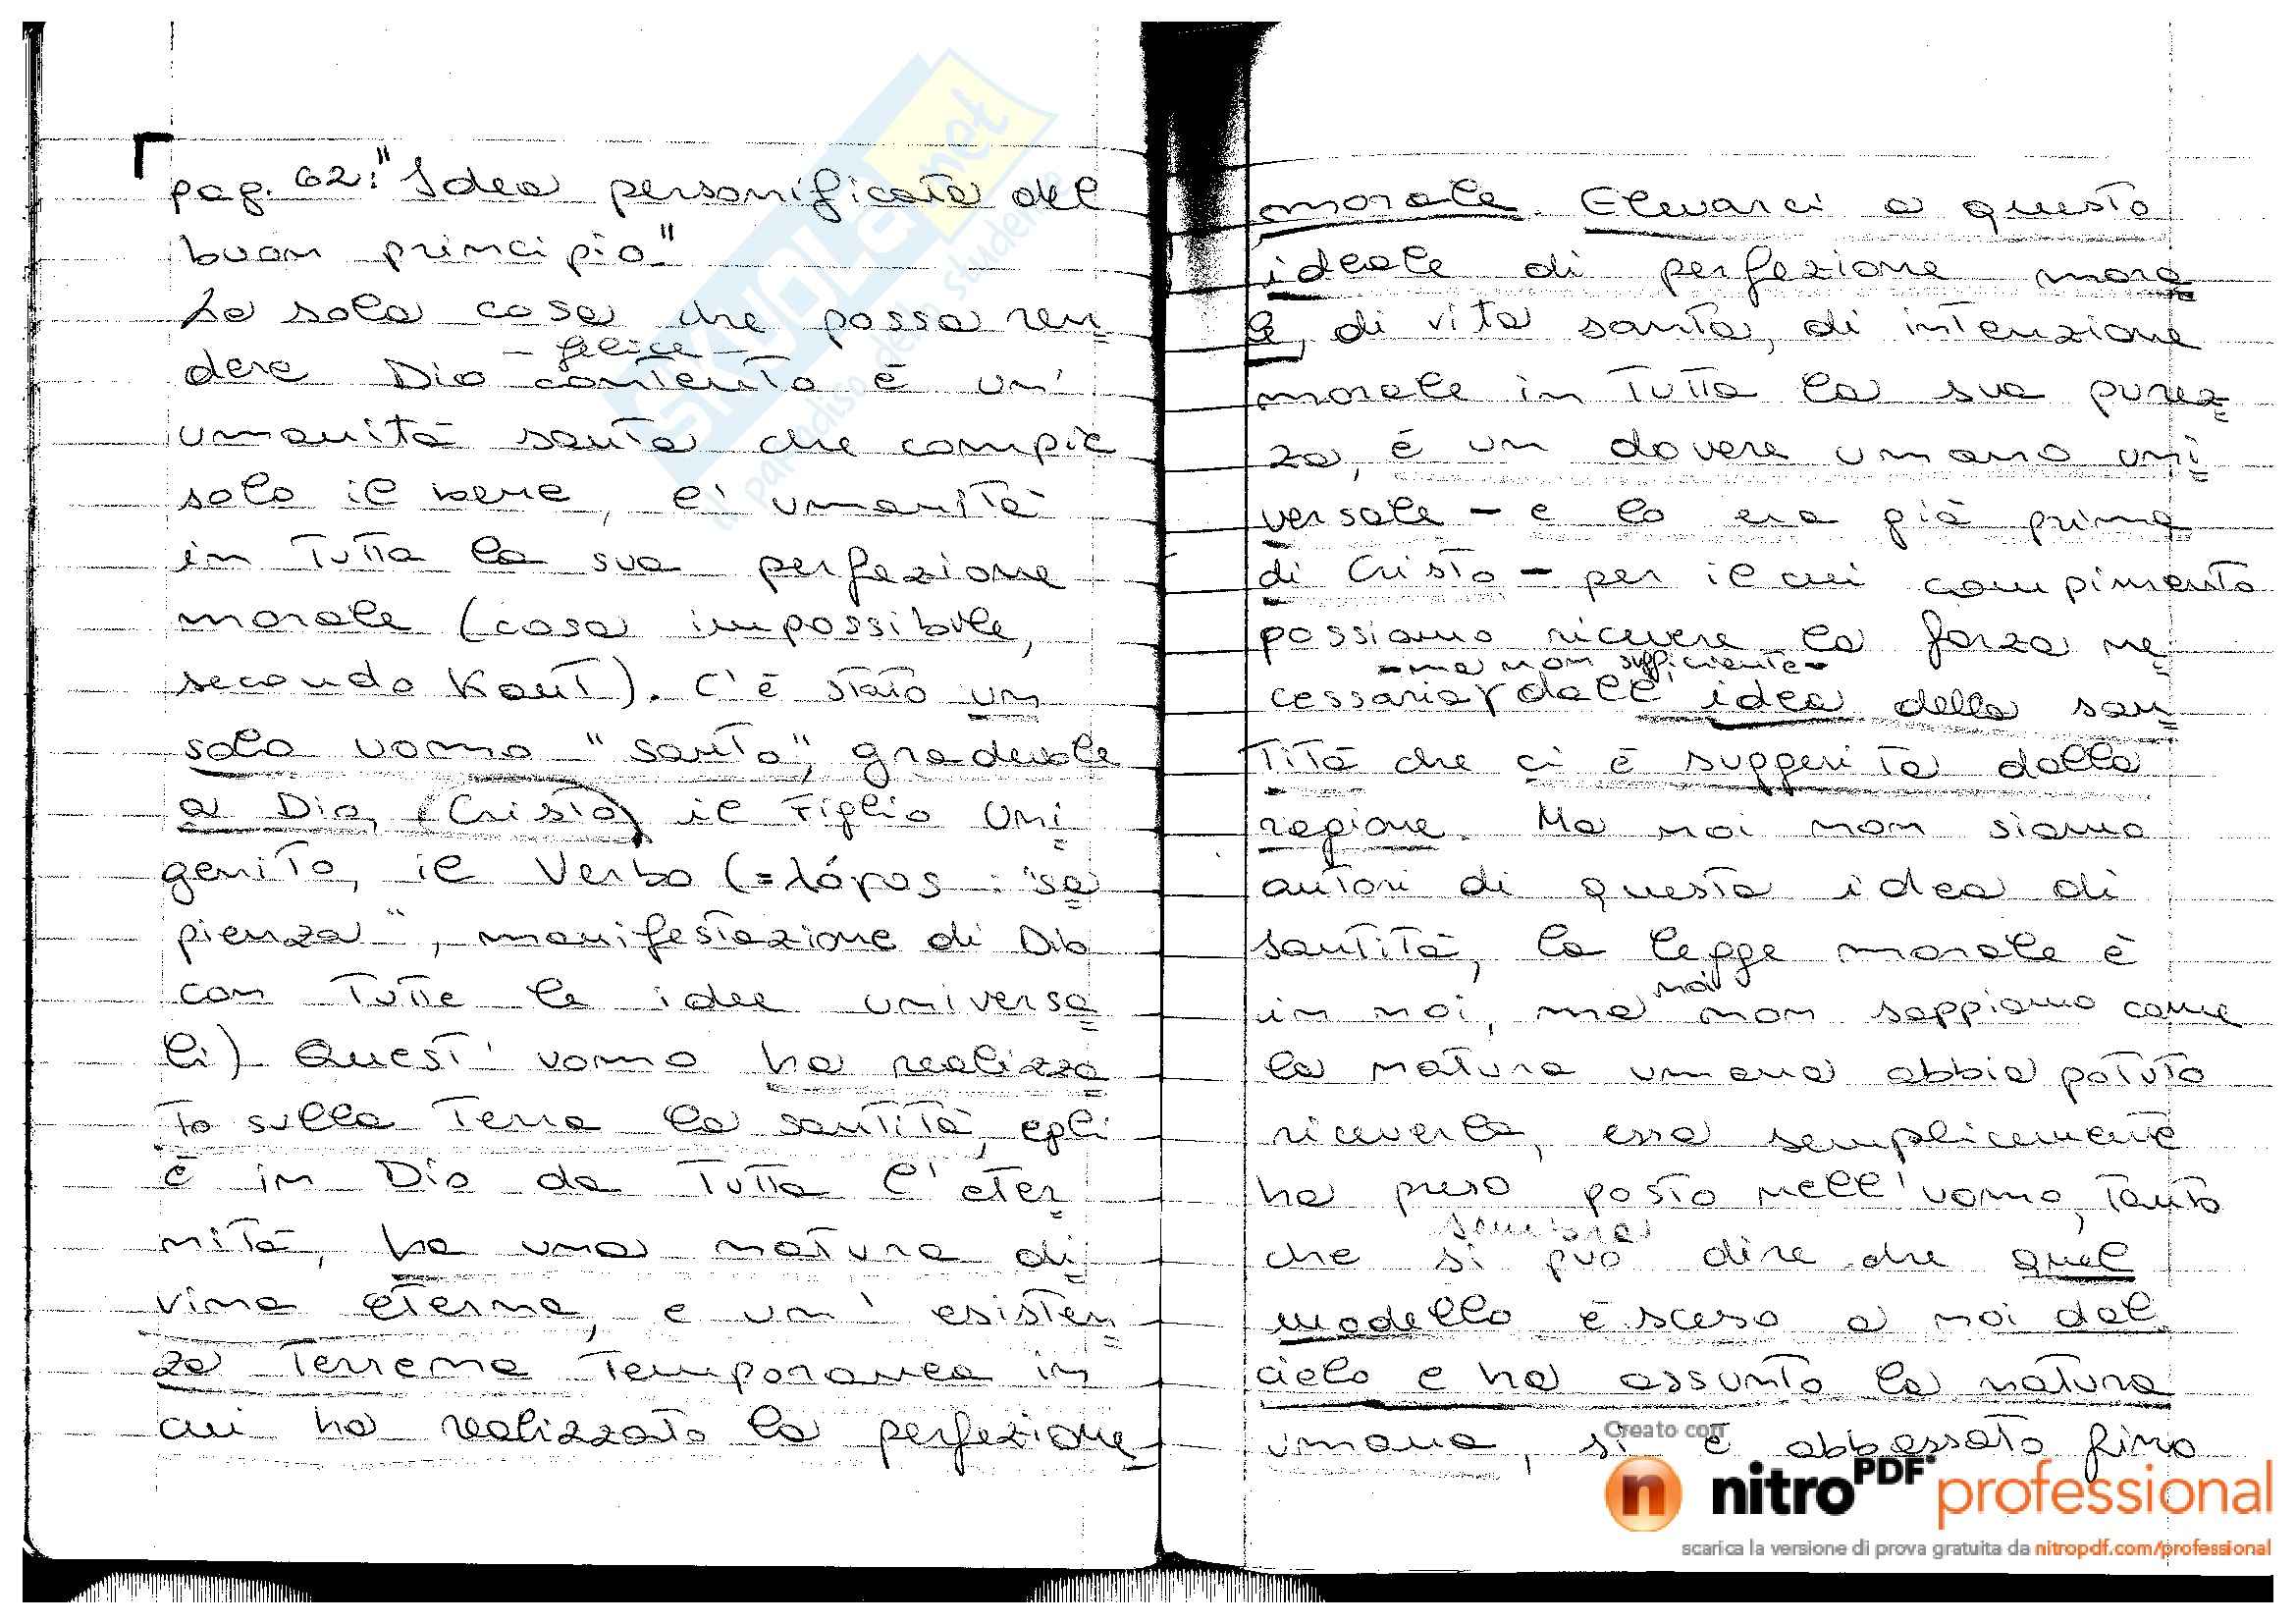 pag. 62: "Idea personificata del
buon principio."
La sola cosa che possa ren=
- felice -
dere Dio contento è un'
umanità santa che compie
solo il bene, l'umanità
in tutta la sua perfezione
morale (cosa impossibile,
secondo Kant). C'è stato un
solo uomo "santo", gradevole
a Dio, (Cristo) il Figlio Uni=
genito, il Verbo (=λóγos : "sa=
pienza", manifestazione di Dio
con tutte le idee universa=
li) Quest'uomo ha realizza=
to sulla Terra la santità, egli
è in Dio da tutta l'eter=
nità, ha una natura di=
vina eterna, e un'esisten=
za terrena temporanea in
cui ha realizzato la perfezione
morale. Elevarci a questo
ideale di perfezione mora=
le, di vita santa, di intenzione
morale in tutta la sua purez=
za, è un dovere umano uni=
versale - e lo era già prima
di Cristo - per il cui compimento
possiamo ricevere la forza ne=
- ma non sufficiente -
cessaria dall'idea della san=
tità che ci è suggerita dalla
ragione. Ma noi non siamo
autori di questa idea di
santità, la legge morale è
noi
in noi, ma non sappiamo come
la natura umana abbia potuto
riceverla, essa semplicemente
ha preso posto nell'uomo, tanto
sembra
che si può dire che quel
modello è sceso a noi dal
cielo e ha assunto la natura
umana, si è abbassato fino
SKUOLA.net
il paradiso dello studente
Creato con
nitroPDF professional
scarica la versione di prova gratuita da nitropdf.com/professional